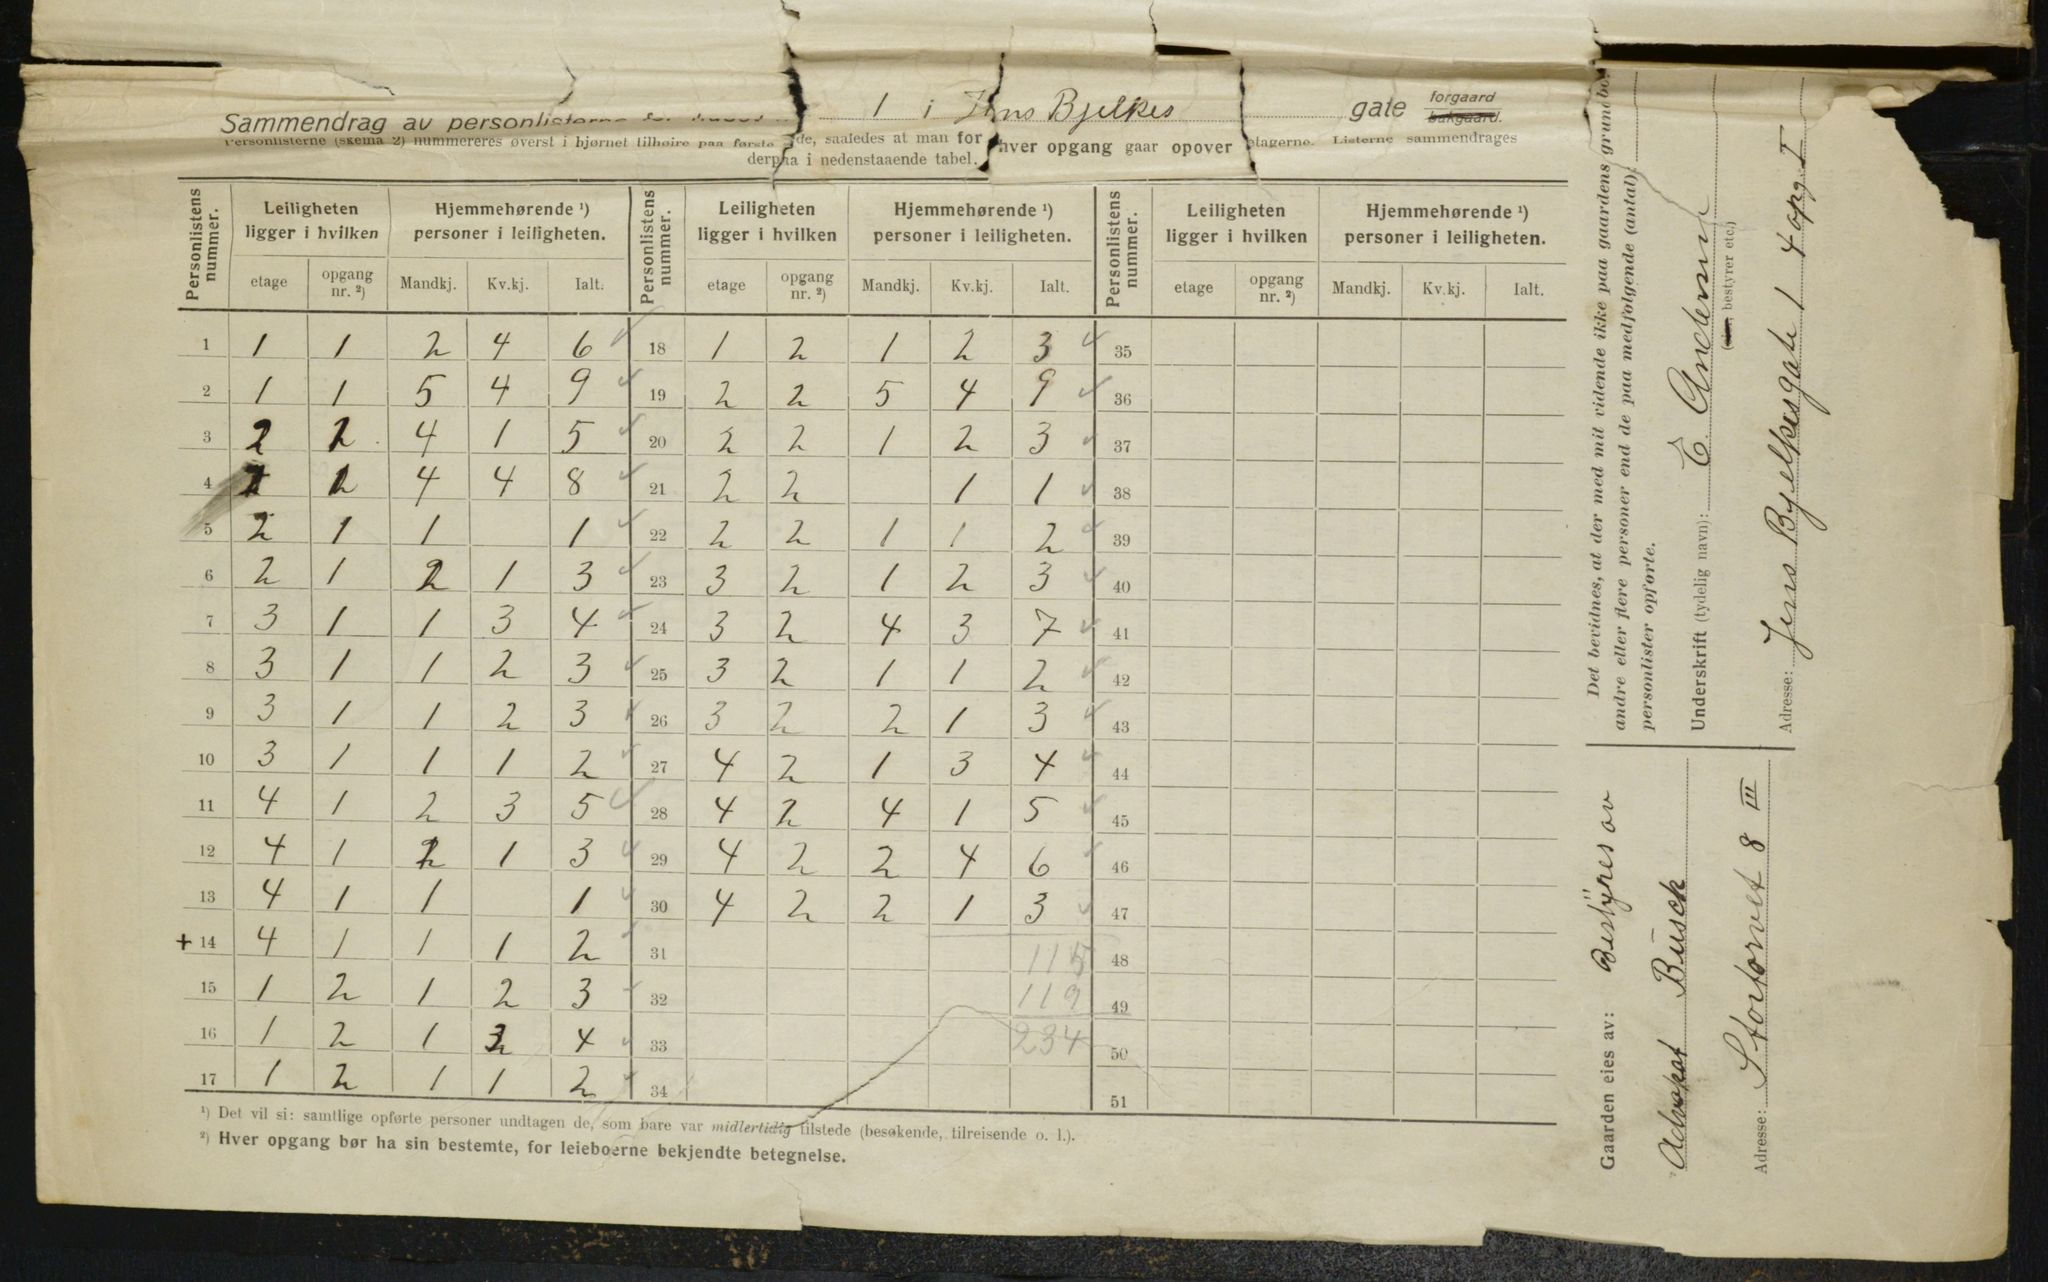 Sammendrag av personlisterne for huset 1 i Jens Bjelkes gate forgaard bakgaard.
Personlisterne (skema 2) nummereres øverst i hjørnet tilhøire paa første side, saaledes at man for hver opgang gaar opover etagerne. Listerne sammendrages
derpaa i nedenstaaende tabel.
Personlistens nummer. Leiligheten ligger i hvilken Hjemmehørende ¹) personer i leiligheten. Personlistens nummer. Leiligheten ligger i hvilken Hjemmehørende ¹) personer i leiligheten. Personlistens nummer. Leiligheten ligger i hvilken Hjemmehørende ¹) personer i leiligheten.
etage opgang nr. ²) Mandkj. Kv.kj. Ialt. etage opgang nr. ²) Mandkj. Kv.kj. Ialt. etage opgang nr. ²) Mandkj. Kv.kj. Ialt.
1 1 1 2 4 6 18 1 2 1 2 3 35
2 1 1 5 4 9 19 2 2 5 4 9 36
3 2 4 1 5 20 2 2 1 2 3 37
4 4 4 8 21 2 2 1 1 38
5 2 1 1 1 22 2 2 1 1 2 39
6 2 1 2 1 3 23 3 2 1 2 3 40
7 3 1 1 3 4 24 3 2 4 3 7 41
8 3 1 1 2 3 25 3 2 1 1 2 42
9 3 1 1 2 3 26 3 2 2 1 3 43
10 3 1 1 1 2 27 4 2 1 3 4 44
11 4 1 2 3 5 28 4 2 4 1 5 45
12 4 1 2 1 3 29 4 2 2 4 6 46
13 4 1 1 1 30 4 2 2 1 3 47
+ 14 4 1 1 1 2 31 115 48
15 1 2 1 2 3 32 119 49
16 1 2 1 3 4 33 234 50
17 1 2 1 1 2 34 51
¹) Det vil si: samtlige opførte personer undtagen de, som bare var midlertidig tilstede (besøkende, tilreisende o. l.).
²) Hver opgang bør ha sin bestemte, for leieboerne bekjendte betegnelse.
Det bevidnes, at der med mit vidende ikke paa gaardens
andre eller flere personer end de paa medfølgende (antal):
personlister opførte.
Underskrift (tydelig navn): E. Andersen
bestyrer etc.)
Adresse: Jens Bjelkesgate 1 4 opg. I
Gaarden eies av: Bestyres av
Advokat Busch
Adresse: Stortorvet 8 III